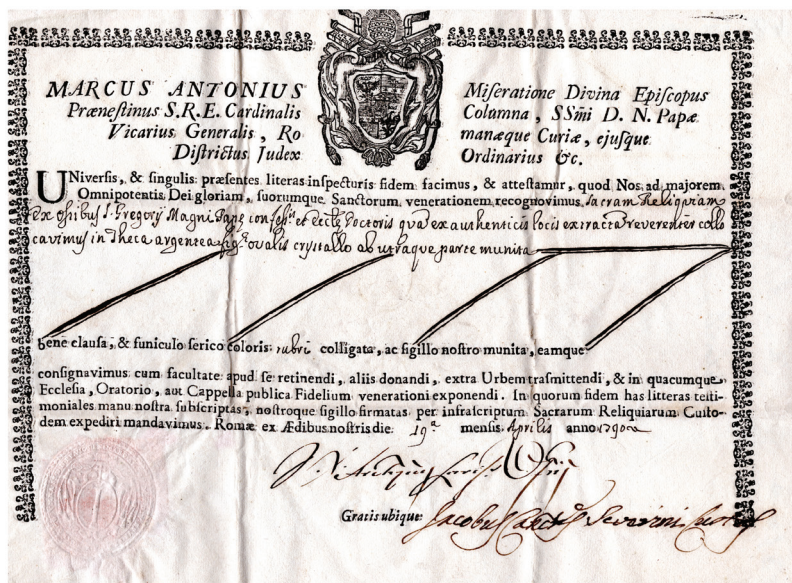 MARCUS ANTONIUS Miseratione Divina Episcopus
Prænestinus S.R.E. Cardinalis Columna, SSm̃i D. N. Papæ
Vicarius Generalis, Ro manæque Curiæ, ejusque
Districtus Judex Ordinarius &c.
UNiversis, & singulis præsentes literas inspecturis fidem facimus, & attestamur, quod Nos ad majorem
Omnipotentis Dei gloriam, suorumque Sanctorum venerationem recognovimus sacram Reliquiam
Ex ossibus S. Gregorij Magni Papę confessis et Ecclę Doctoris quã ex authenticis locis extractã reverenter collo
cavimus in Theca argentea figę ovalis crystallo ab utraque parte munita
bene clausa, & funiculo serico coloris rubri colligata, ac sigillo nostro munita, eamque
consignavimus cum facultate apud se retinendi, aliis donandi, extra Urbem trasmittendi, & in quacumque
Ecclesia, Oratorio, aut Cappella publica Fidelium venerationi exponendi. In quorum fidem has litteras testi-
moniales manu nostra subscriptas, nostroque sigillo firmatas per infrascriptum Sacrarum Reliquiarum Custo-
dem expediri mandavimus. Romæ ex Ædibus nostris die 19ª mensis Aprilis anno
Gratis ubique Jacobus Severini